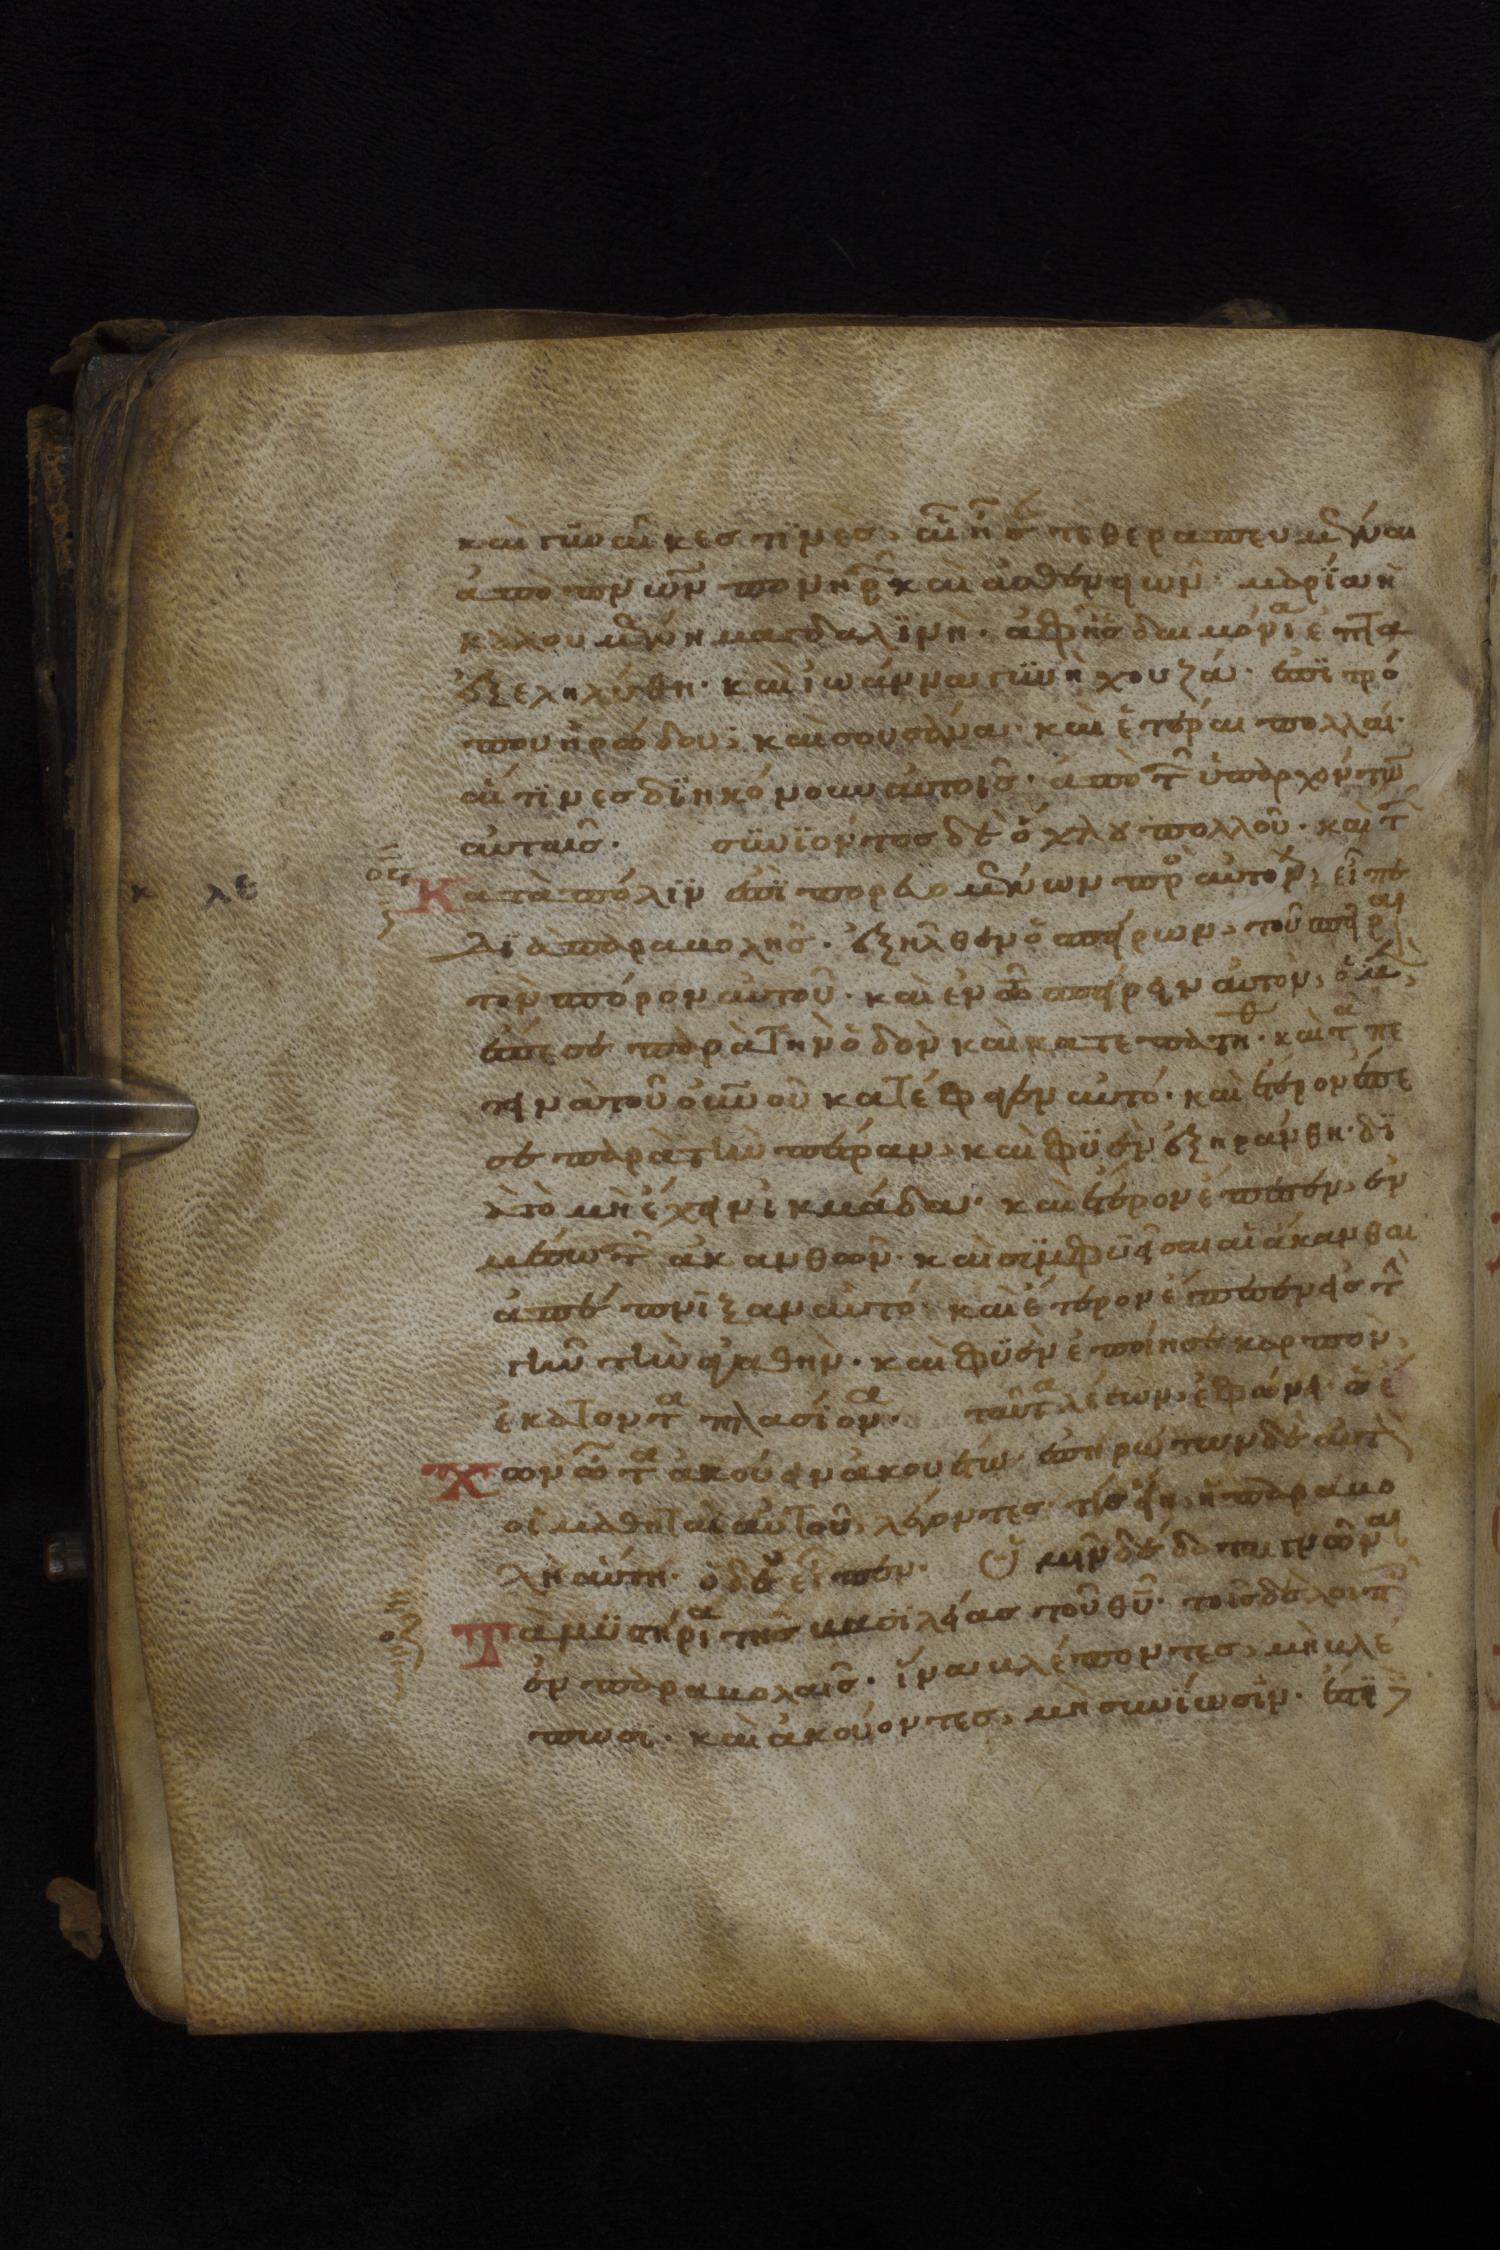 καὶ γϋναῖκες τϊνὲς, αἳ ἦσ τεθεραπευμέναι
ἀπὸ πνῶν πονηρ καὶ ἀσθενειῶν· μαρία ἡ
καλουμένη μαγδαλϊνὴ· ἀφ ἧς δαιμόνια ἑπτα
ἐξεληλύθη· καὶ ἰωάννα γϋνὴ χουζά· ἐπϊτρό
που ἡρώδου· καὶ σουσάνα· καὶ ἕτεραι πολλαί·
αἵτϊνες δϊηκόνουν αὐτοῖς· ἀπὸ τ ὑπαρχόντων
αὐταῖς· σϋνϊόντος δὲ ὄχλου πολλοῦ· καὶ τ
κ λε Κατὰ πόλϊν ἐπϊπορευομένων πρὸ αὐτὸν, εἶπε
δϊὰ παραβολῆς· ἐξῆλθεν ὁ σπείρων, τοῦ σπεῖραι
τὸν σπόρον αὐτοῦ· καὶ ἐν ῶ σπείρειν αὐτὸν, ὃ μ
ἔπεσε παρὰ τὴν ὁδὸν καὶ κατεπατήθ· καὶ τὰ πε
τεινὰ τοῦ οὐνοῦ κατέφαγεν αὐτό· καὶ ἕτερον ἔπε
σε παρὰ τὴν πέτραν, καὶ φϋὲν ἐξηράνθη· δϊ
ὰ τὸ μὴ ἔχειν ἰκμάδα· καὶ ἕτερον ἔπεσεν, ἐν
μέσω τ ἀκανθῶν· καὶ σϋμφϋεῖσαι αἱ ἄκανθαι
ἀπέπνϊξαν αὐτό· καὶ ἕτερον ἔπεσεν εἰς τ
γῆν τὴν ἀγαθὴν· καὶ φϋὲν ἐποίησε καρπὸν,
ἑκατονταπλασίονα· ταῦτα λέγων, ἐφώνει· ὁ ἔ
Χων ὦτα ἀκούειν ἀκουέτω· ἐπηρώτων δὲ αὐτ
οἱ μαθηταὶ αὐτοῦ, λέγοντες· τίς εἴη, ἡ παραβο
λὴ αὕτη· ὁ δὲ εἶπεν· Ὑμῖν δέδοται γνῶναι
Τὰ μϋστήρια τῆς βασιλείας τοῦ θυ· τοῖς δὲ λοιπ
ἐν παραβολαῖς· ἵνα βλέποντες, μὴ βλέ
πωσι· καὶ ἀκούοντες, μὴ σϋνϊῶσϊν·